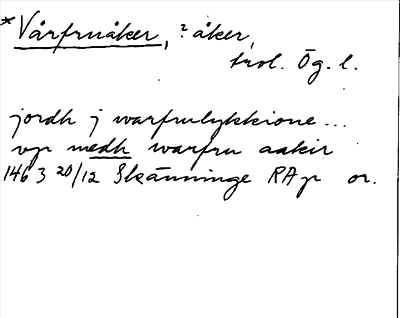 *Vårfruåker, ? åker,
trol. Ög. l.
jordh j warfrulykkione...
vp medh warfru aakir
1463 20/12 Skänninge RAp or.